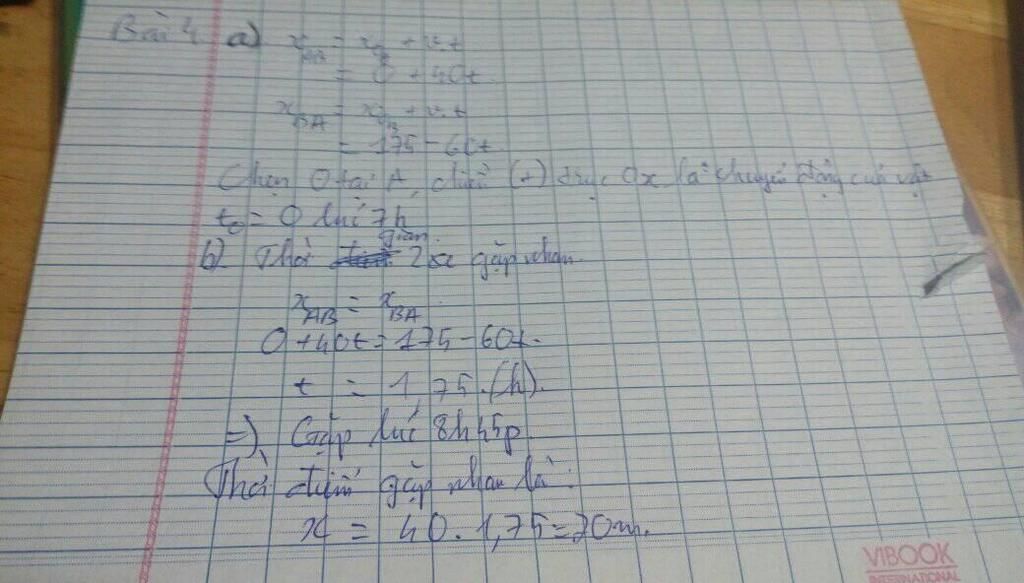 Bài 4 a) x_AB = x_0 + v.t
= 0 + 40t
x_BA = x_0B + v.t
= 175 - 60t
Chọn O tại A, chiều (+) trục Ox là chuyển động của vật
t_0 = 0 lúc 7h
b) Thời gian 2 xe gặp nhau
x_AB = x_BA
0 + 40t = 175 - 60t.
t = 1,75.(h).
=> Gặp lúc 8h45p
Thời điểm gặp nhau là:
x = 40.1,75 = 70m.
VIBOOK
INTERNATIONAL